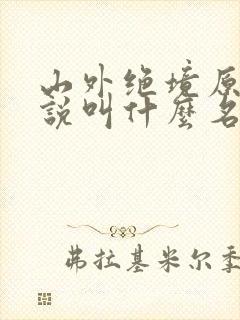 山外绝境原
說叫什麼名
弗拉基米尔季